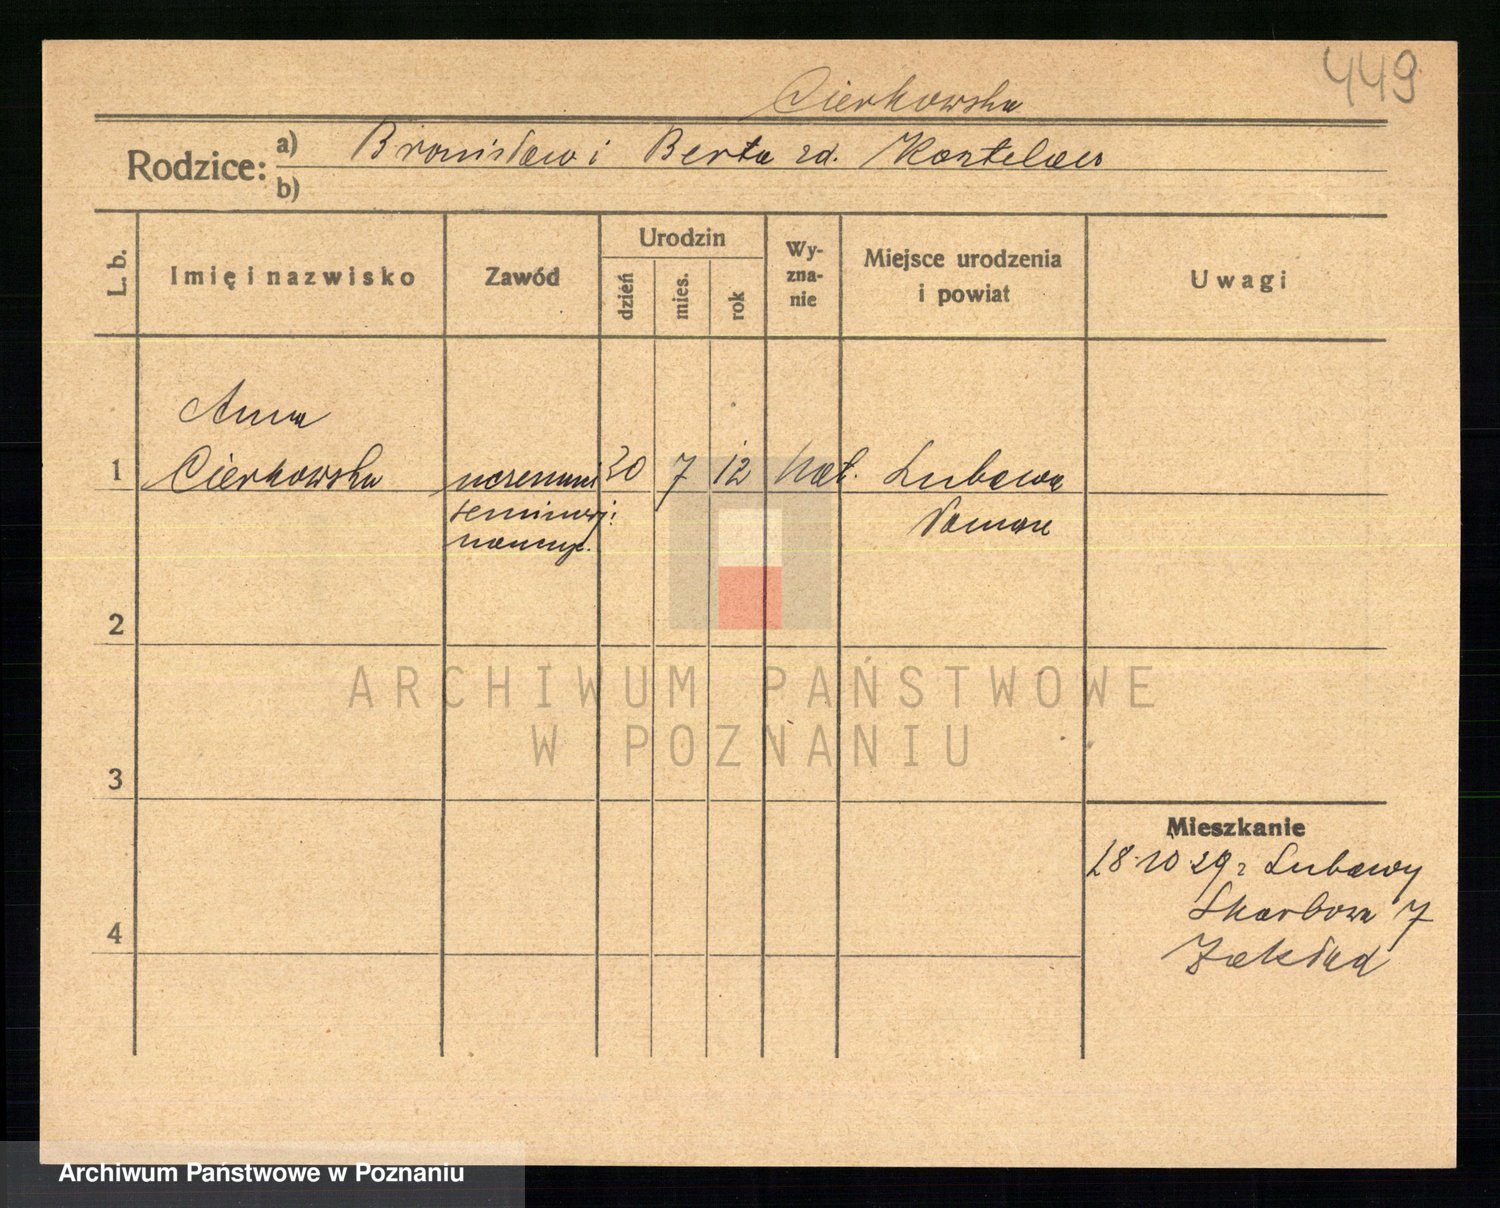 449
Cierkowska
Rodzice: a) Bronisław i Berta zd.
b)
L. b.
Imię i nazwisko
Zawód
Urodzin
dzień
mies.
rok
Wy-
zna-
nie
Miejsce urodzenia
i powiat
Uwagi
Anna
1 Cierkowska uczenni 20 7 12 kat. Lubawa
seminarj.
nauczyc.
2
3
4
Mieszkanie
28.10 29 z Lubawy
Skarbowa 7
Zakład
ARCHIWUM PAŃSTWOWE
W POZNANIU
Archiwum Państwowe w Poznaniu